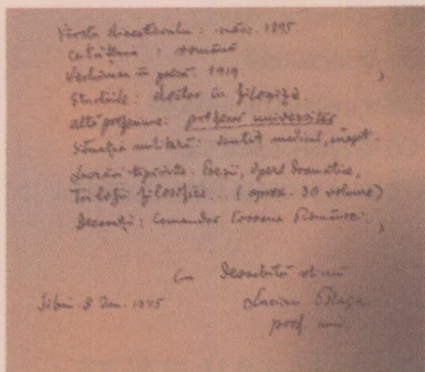 Vârsta directorului: născ. 1895
cetățenia : română
Vechimea în presă: 1919
Studiile: doctor în filosofie
alte profesiuni: profesor universitar
Situația militară: scutit medical, inapt.
Lucrări tipărite: Eseuri, opere dramatice,
Trilogii filosofice... (aprox. 30 volume)
Decorații: Comandor Coroana României.
Cu deosebită stimă
Sibiu 8 Ian. 1945 Lucian Blaga
prof. univ.